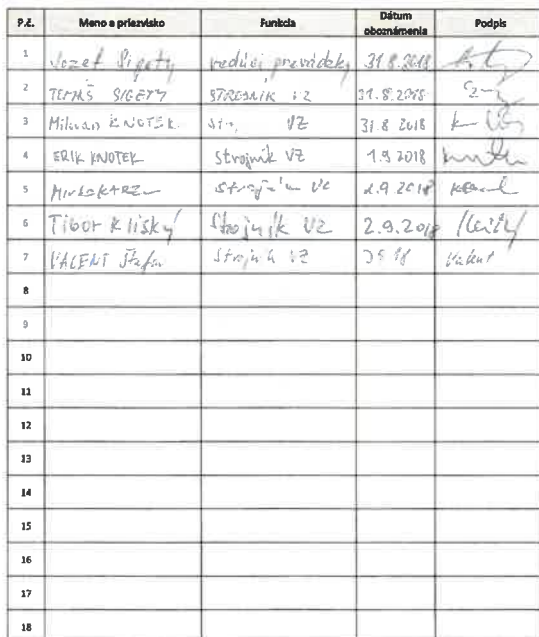 P.č. Meno a priezvisko Funkcia Dátum oboznámenia Podpis
1 Jozef Sigety vedúci prevádzky 31.8.2018
2 TOMÁŠ SIGETY STROJNÍK VZ 31.8.2018
3 Milan KNOTEK VZ 31.8 2018
4 ERIK KNOTEK strojník VZ 1.9 2018
5 2.9.2018
6 Tibor Kliský Strojník VZ 2.9.2018
7 VALENT Štefan Strojník VZ Valent
8
9
10
11
12
13
14
15
16
17
18